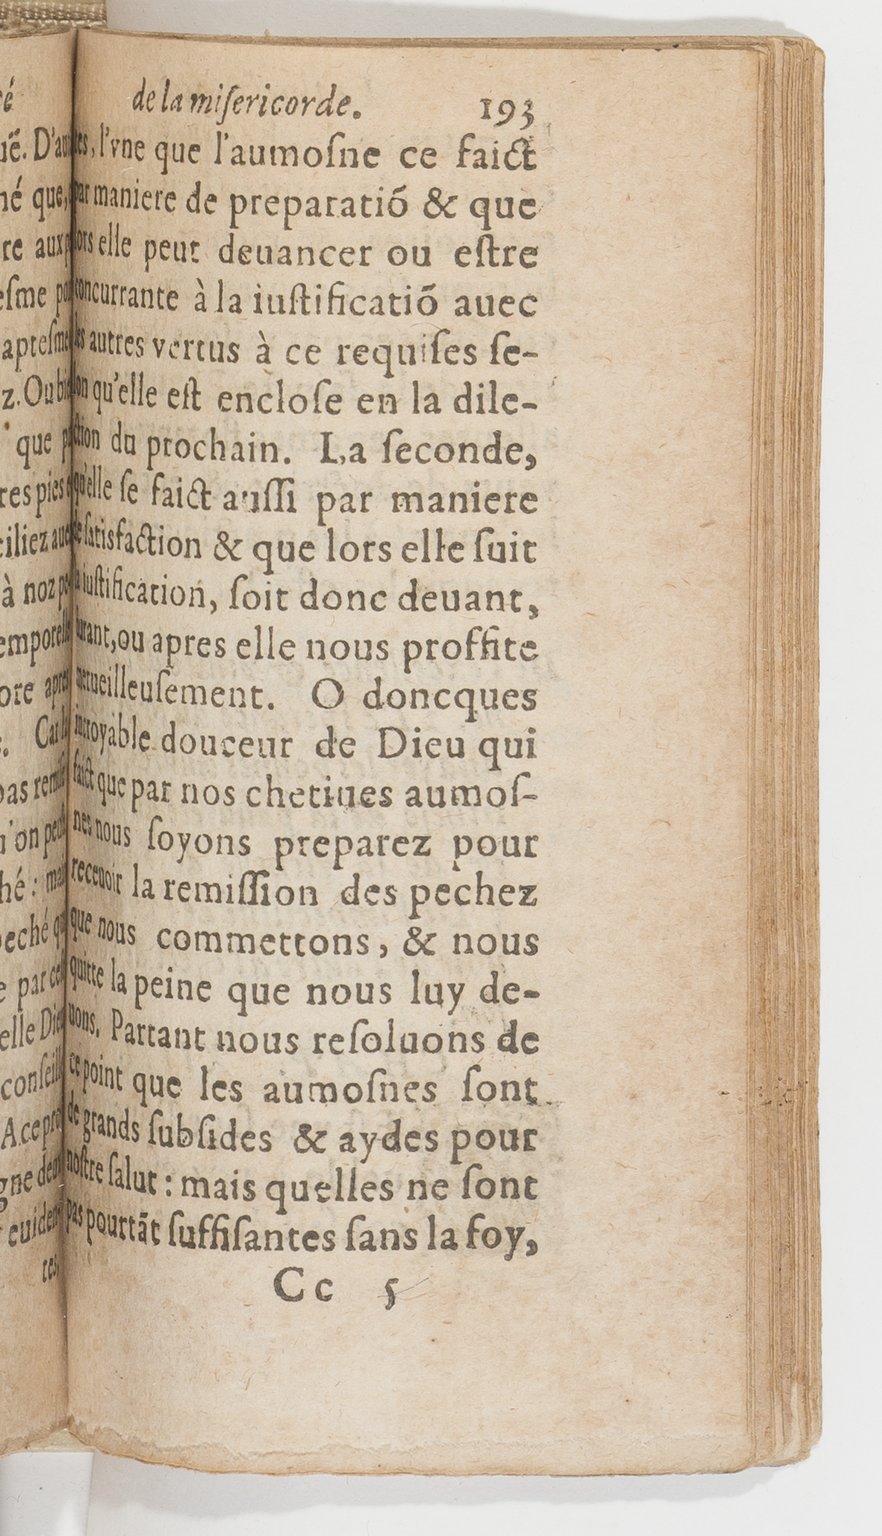 de la miſericorde. 193
l'vne que l'aumoſne ce faict
maniere de preparatiõ & que
elle peut deuancer ou eſtre
concurrante à la iuſtificatiõ auec
autres vertus à ce requiſes ſe-
qu'elle eſt encloſe en la dile-
ction du prochain. La ſeconde,
qu'elle ſe faict auſſi par maniere
ſatisfaction & que lors elle ſuit
iuſtification, ſoit donc deuant,
durant, ou apres elle nous proffite
merueilleuſement. O doncques
incroyable douceur de Dieu qui
faict que par nos chetiues aumoſ-
nes nous ſoyons preparez pour
receuoir la remiſſion des pechez
que nous commettons, & nous
quitte la peine que nous luy de-
uons. Partant nous reſoluons de
ce point que les aumoſnes ſont
de grands ſubſides & aydes pour
noſtre ſalut : mais quelles ne ſont
pas pourtãt ſuffiſantes ſans la foy,
Cc 5